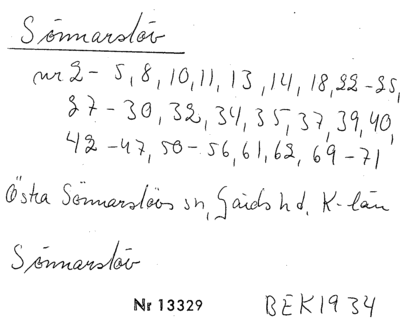 Sönnarslöv
nr 2 - 5, 8, 10, 11, 13, 14, 18, 22 - 25,
27 - 30, 32, 34, 35, 37, 39, 40,
42 - 47, 50 - 56, 61, 62, 69 - 71
Östra Sönnarslövs sn, Gärds hd. K-län
Sönnarslöv
Nr 13329 BEK 1934